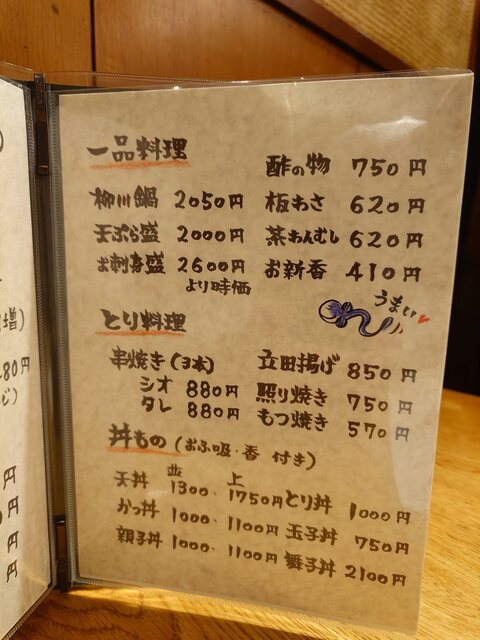 一品料理
酢の物 750円
柳川鍋 2050円 板わさ 620円
天ぷら盛 2000円 茶わんむし 620円
お刺身盛 2600円 お新香 410円
より時価
うまい
とり料理
串焼き(3本) 立田揚げ 850円
シオ 880円 照り焼き 750円
タレ 880円 もつ焼き 570円
丼もの(お吸・香 付き)
並 上
天丼 1300、1750円 とり丼 1000円
かつ丼 1000、1100円 玉子丼 750円
親子丼 1000、1100円 舞子丼 2100円
増)
80円
じ)
円
円
円
円